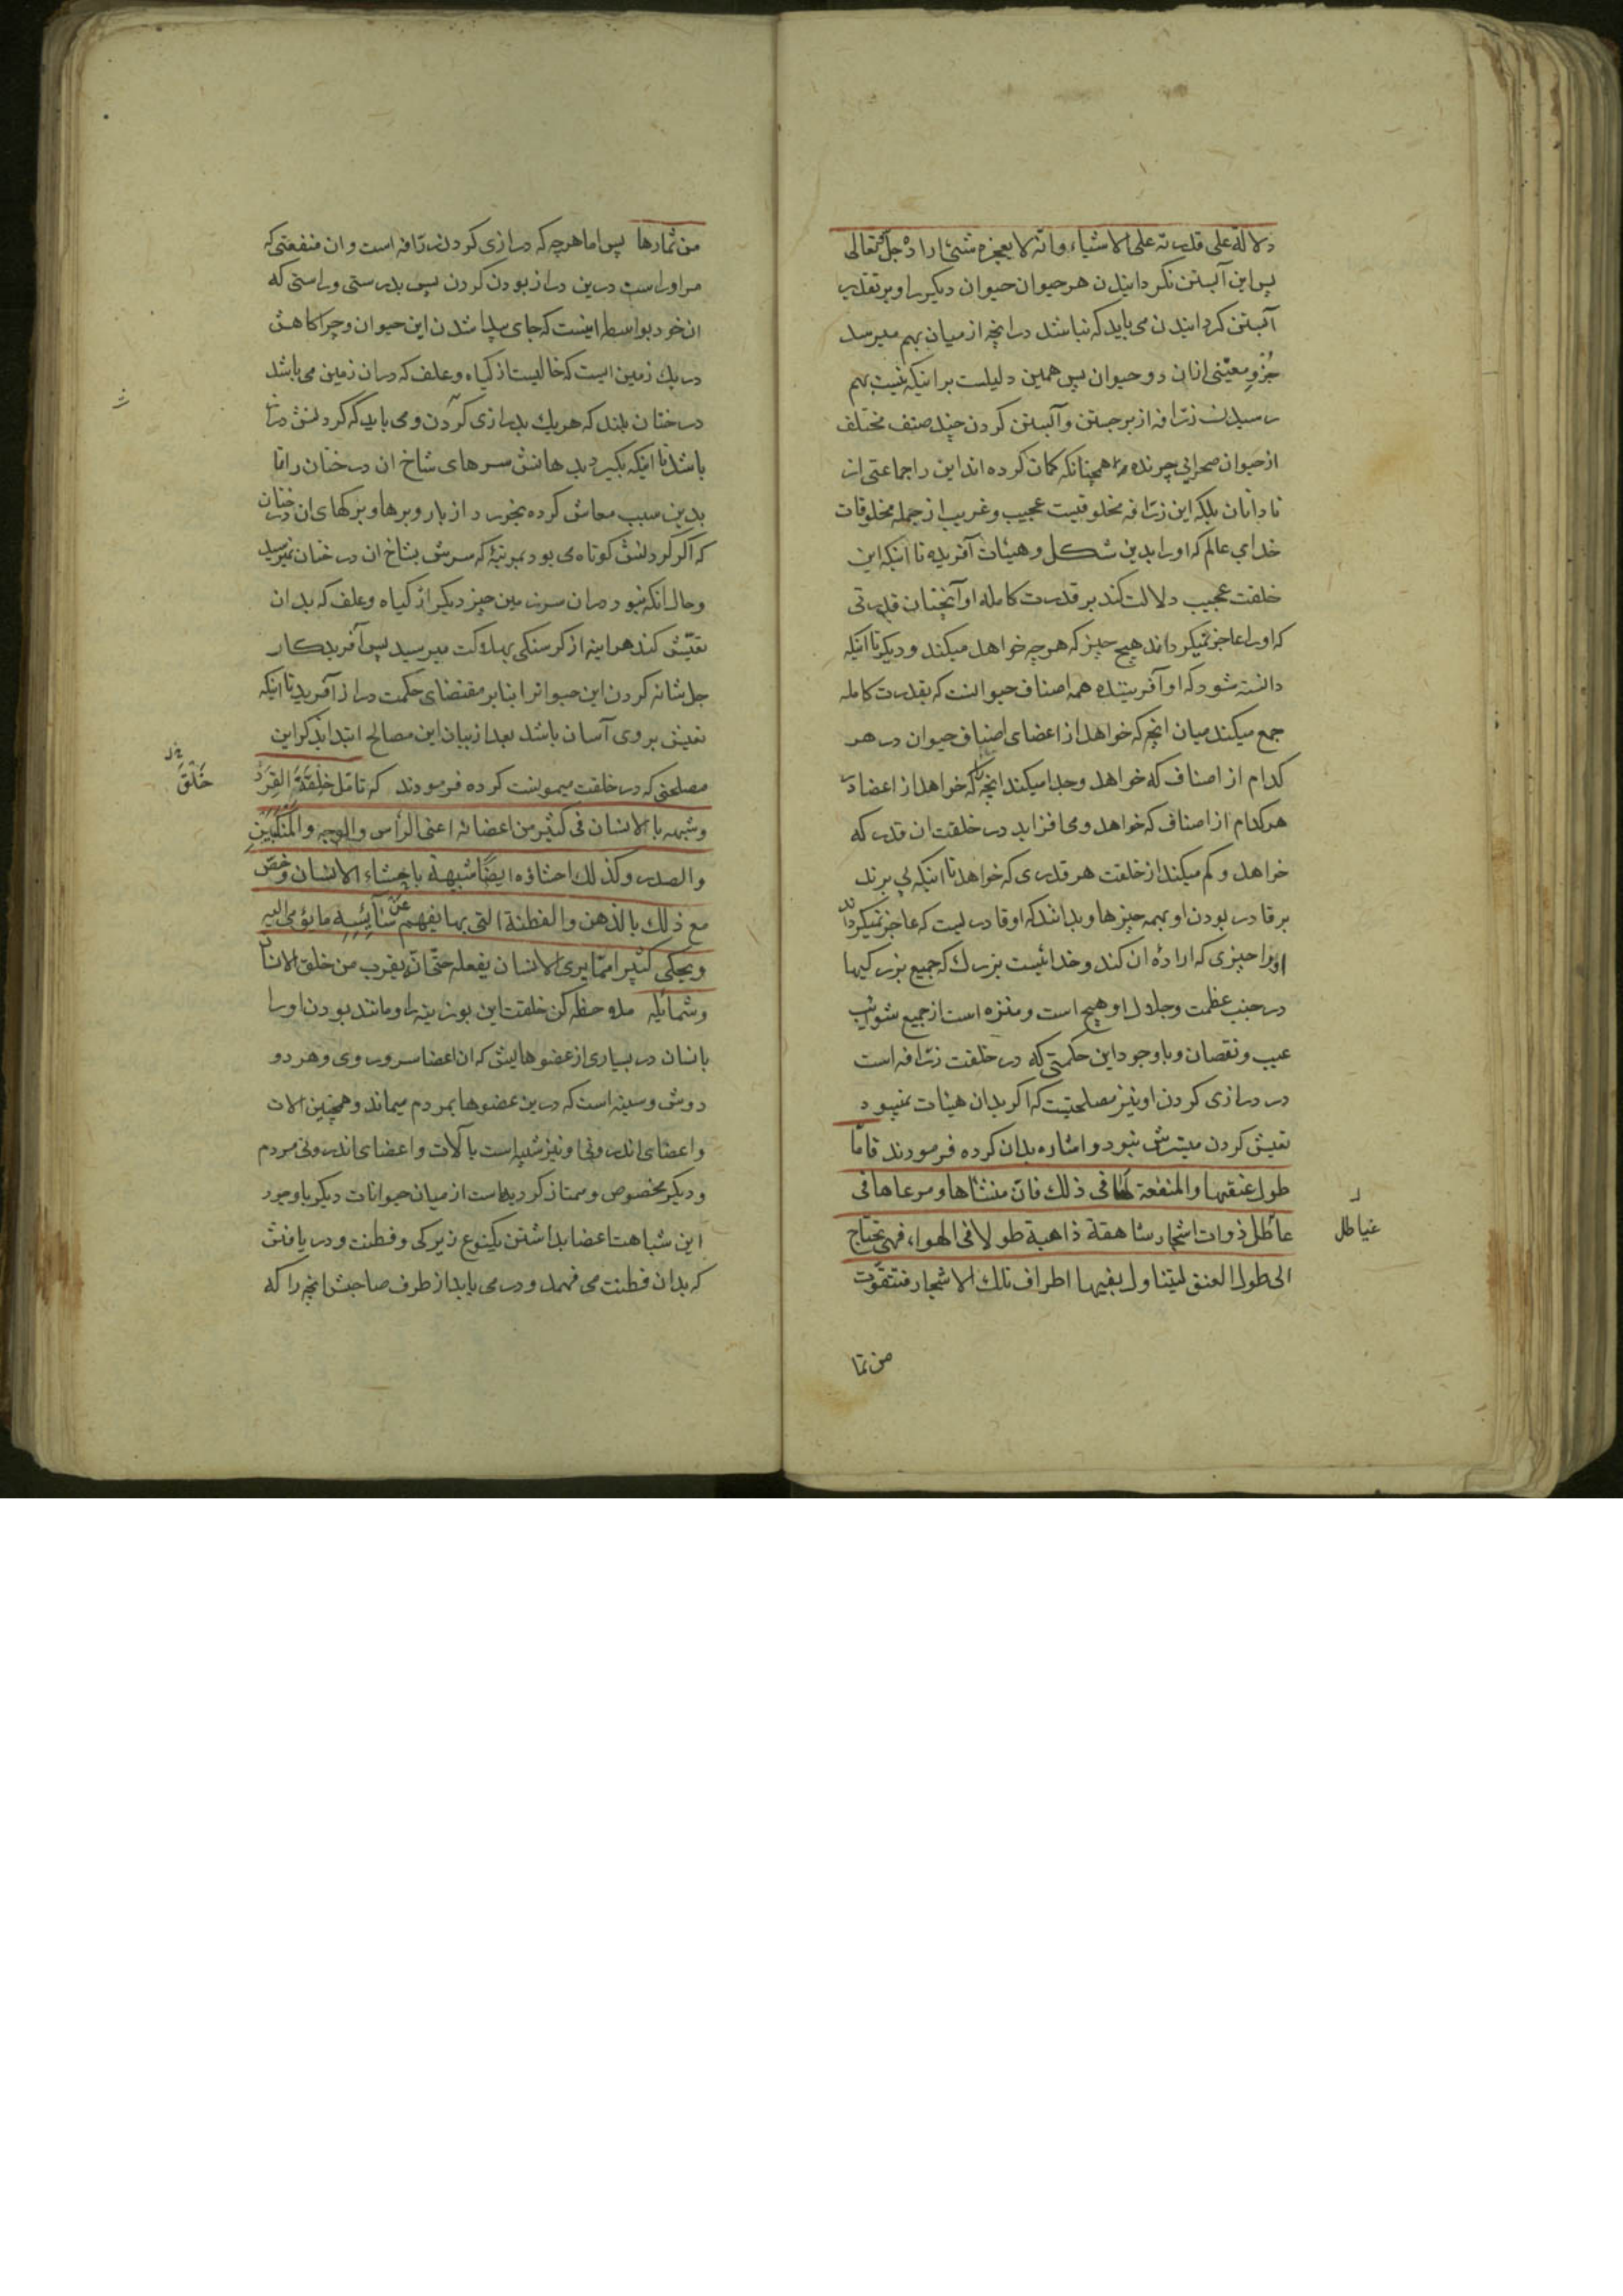 دلالة علی قدرته علی الاشیاء وانّه لا یعجزه شیٔ اراده جلّ وتعالی
پس این آبستن نکردانیدن هر حیوان حیوان دیکر را و بر تقدیر
آبستن کردانیدن می باید که نباشد در انچه از میان بهم میرسد
جُزوِ معیّنی ازان دو حیوان پس همین دلیلست بر اینکه نیست بهم
رسیدن زرّافه از برجستن و آبستن کردن چند صنف مختلف
از حیوان صحرائی چرنده همچنانکه کمان کرده اند این را جماعتی از
نادانان بلکه این زرّافه مخلوقیست عجیب وغریب از جمله مخلوقات
خدای عالم که او را بدین شکل وهیئات آفریده تا اینکه این
خلقت عجیب دلالت کند بر قدرت کامله او آنچنان قدرتی
که او را عاجز نمیکرداند هیچ چیز که هر چه خواهد میکند و دیکر تا اینکه
دانسته شود که او آفریننده همه اصناف حیوانست که بقدرت کامله
جمع میکند میان انچه که خواهد از اعضای اصناف حیوان در هر
کدام از اصناف که خواهد وجدا میکند انچه را که خواهد از اعضا در
هر کدام از اصناف که خواهد ومی افزاید در خلقت ان قدر که
خواهد و کم میکند از خلقت هر قدری که خواهد تا اینکه پی برند
بر قادر بودن او بهمه چیزها و بدانند که او قادریست که عاجز نمیکرداند
او را چیزی که ارادهٔ ان کند وخدائیست بزرك که جمیع بزرکیها
در جنب عظمت وجلال او هیچ است و منزه است از جمیع شوایب
عیب ونقصان و باوجود این حکمتی که در خلقت زرّافه است
در درازی کردن او نیز مصلحتیست که اکر بدان هیئات نمیبود
تعیش کردن میسرش نبود و اشاره بدان کرده فرمودند فامّا
طول عنقها والمنفعة لها فی ذلك فانّ منشاها ومرعاها فی
غیاطل
عاطل ذوات اشجار شاهقة ذاهبة طولا فی الهواء فهی تحتاج
الی طول العنق لیتناول بفیها اطراف تلك الاشجار فتتقوّت
من ثما
من ثمارها پس اما هر چه که درازی کردن زرّافه است وان منفعتی که
مر او راست درین دراز بودن کردن پس بدرستی و راستی که
ان خود بواسطه اینست که جای پیدا شدن این حیوان وچراکاهش
در یك زمین است که خالیست از کیاه وعلف که در ان زمین می باشد
درختان بلند که هر یك بدرازی کردن ومی باید که کردنش دراز
باشد تا اینکه بکیرد بدهانش سرهای شاخ ان درختان را تا
بدین سبب معاش کرده بخورد از بار وبرها و برکهای ان درختان
که اکر کردنش کوتاه می بود بمرتبهٔ که سرش بشاخ ان درختان نمیرسید
وحال انکه نبود دران سرزمین چیز دیکر از کیاه وعلف که بدان
تعیّش کند هر اینه از کرسنکی بهلاکت میرسید پس آفریدکار
جل شانه کردن این حیوانرا بنابر مقتضای حکمت دراز آفرید تا اینکه
تعیش بر وی آسان باشد بعد از بیان این مصالح ابتدا بذکر این
مصلحتی که در خلقت میمونست کرده فرمودند که تامّل خِلْقَةَ القِرَدِ
خَلْقَ
وشبهه بالانسان فی کثیر من اعضائه اعنی الرأس والوجه والمَنْکِبَینِ
والصدر وکذلك احشاؤه ایضًا شبیهة باحشاء الانسان وخصّ
مع ذلك بالذهن والفطنة التی بها یفهم عن سَائِسِهِ ما یؤمی الیه
ویحکی کثیرا ممّا یری الانسان یفعله حتّی انّه یقرب من خلق الانسان
وشمائله ملاحظه کن خلقت این بوزینه را ومانند بودن او را
بانسان در بسیاری از عضوهایش که ان اعضا سر و روی وهر دو
دوش وسینه است که درین عضوها بمردم میماند وهمچنین الات
واعضای اندرونی او نیز شبیه است بآلات واعضای اندرونی مردم
و دیکر مخصوص وممتاز کردیده است از میان حیوانات دیکر باوجود
این شباهت اعضا بداشتن یکنوع زیرکی وفطنت و دریافتن
که بدان فطنت می فهمد و در می یابد از طرف صاحبش انچه را که